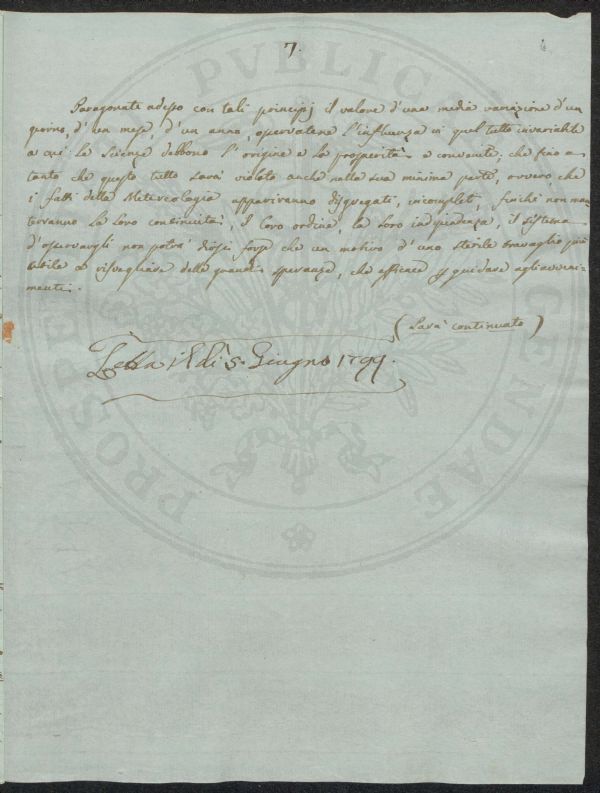 7.
Paragonate adesso con tali principj il valore d'una media variazione d'un
giorno, d'un mese, d'un anno, osservatene l'influenza in quel tutto invariabile
a cui le scienze debbono l'origine e la prosperità e converrete, che fino a
tanto che questo tutto sarà violato anche nella sua minima parte, ovvero che
i fatti della Meteorologia appariranno disgregati, incompleti, finchè non man
terranno la loro continuità, il loro ordine, la loro indipendenza, il sistema
d'osservargli non potrà dirsi forse che un motivo d'uno sterile travaglio più
abile a risvegliare delle grandi speranze, che efficace per guidare agli avveni-
menti.
(Sarà continuato)
Letta il dì 5. Giugno 1799.
PROSPERITATI PVBLICAE AVGENDAE